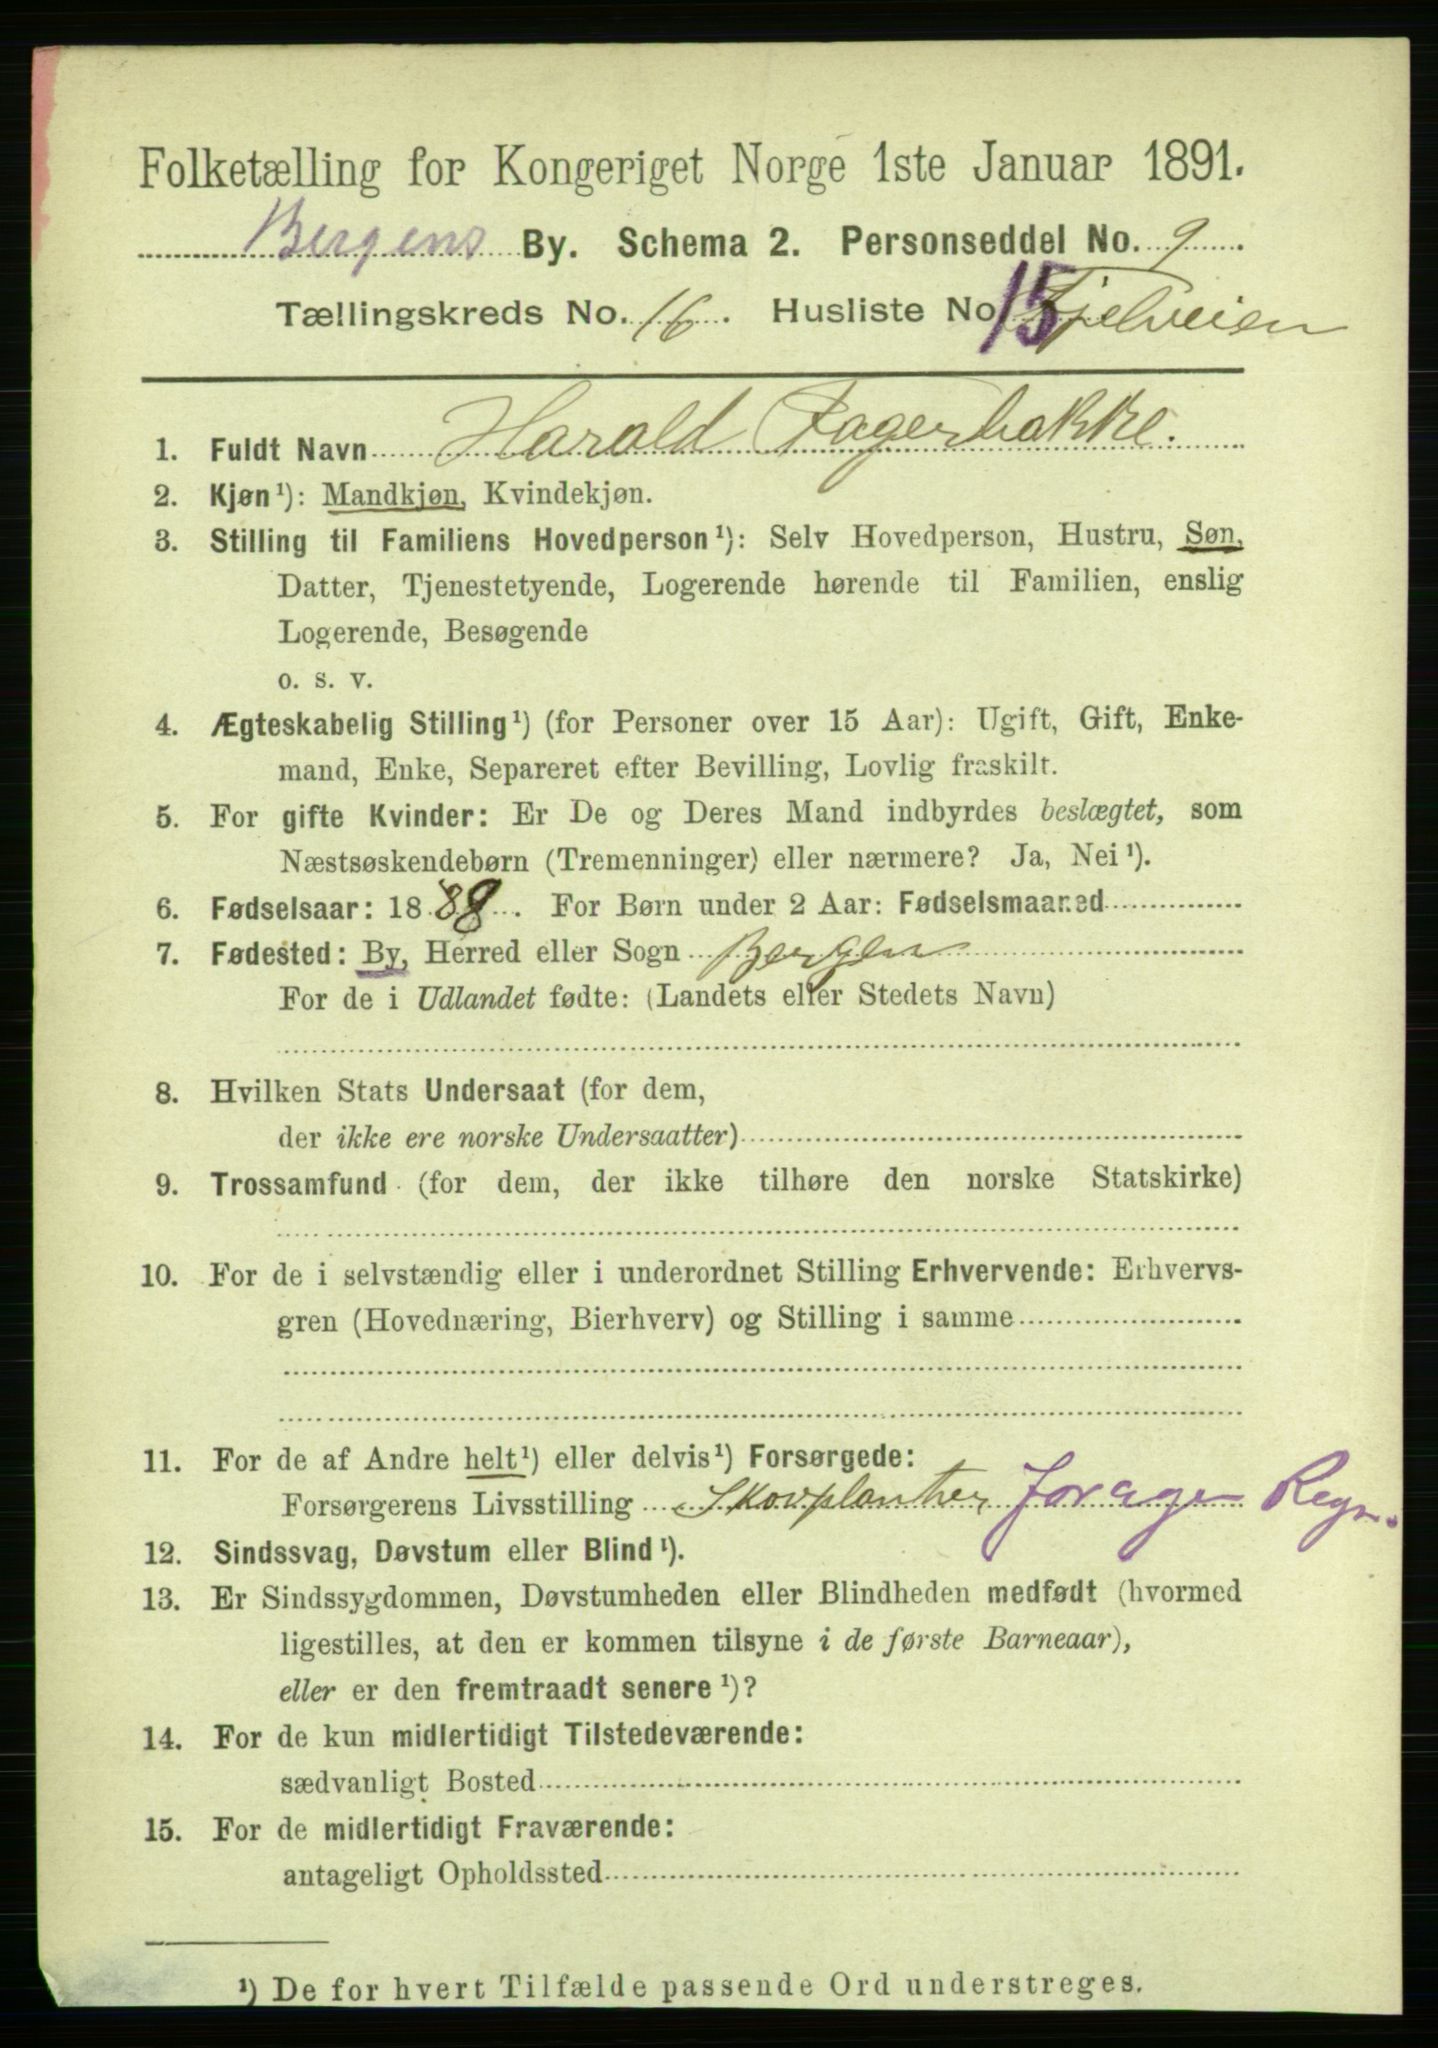 Folketælling for Kongeriget Norge 1ste Januar 1891.
Bergens By. Schema 2. Personseddel No. 9.
Tællingskreds No. 16. Husliste No. 15 Fjelveien
1. Fuldt Navn Harald Fagerbakke.
2. Kjøn¹): Mandkjøn, Kvindekjøn.
3. Stilling til Familiens Hovedperson¹): Selv Hovedperson, Hustru, Søn,
Datter, Tjenestetyende, Logerende hørende til Familien, enslig
Logerende, Besøgende
o. s. v.
4. Ægteskabelig Stilling¹) (for Personer over 15 Aar): Ugift, Gift, Enke-
mand, Enke, Separeret efter Bevilling, Lovlig fraskilt.
5. For gifte Kvinder: Er De og Deres Mand indbyrdes beslægtet, som
Næstsøskendebørn (Tremenninger) eller nærmere? Ja, Nei¹).
6. Fødselsaar: 1888. For Børn under 2 Aar: Fødselsmaaned
7. Fødested: By, Herred eller Sogn Bergen
For de i Udlandet fødte: (Landets eller Stedets Navn)
8. Hvilken Stats Undersaat (for dem,
der ikke ere norske Undersaatter)
9. Trossamfund (for dem, der ikke tilhøre den norske Statskirke)
10. For de i selvstændig eller i underordnet Stilling Erhvervende: Erhvervs-
gren (Hovednæring, Bierhverv) og Stilling i samme
11. For de af Andre helt¹) eller delvis¹) Forsørgede:
Forsørgerens Livsstilling Skovplanther for egen Regn.
12. Sindssvag, Døvstum eller Blind¹).
13. Er Sindssygdommen, Døvstumheden eller Blindheden medfødt (hvormed
ligestilles, at den er kommen tilsyne i de første Barneaar),
eller er den fremtraadt senere¹)?
14. For de kun midlertidigt Tilstedeværende:
sædvanligt Bosted
15. For de midlertidigt Fraværende:
antageligt Opholdssted
¹) De for hvert Tilfælde passende Ord understreges.